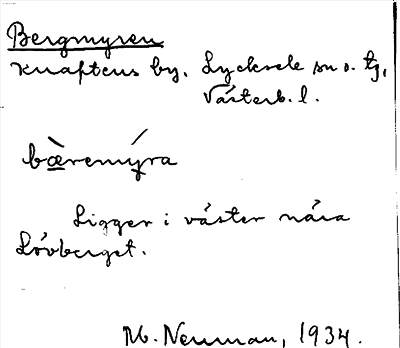 Bergmyren
Knaftens by, Lycksele sn o. tg,
Västerb. l.
bæ̀remýra
Ligger i väster nära
Lövberget.
M. Neuman, 1934.